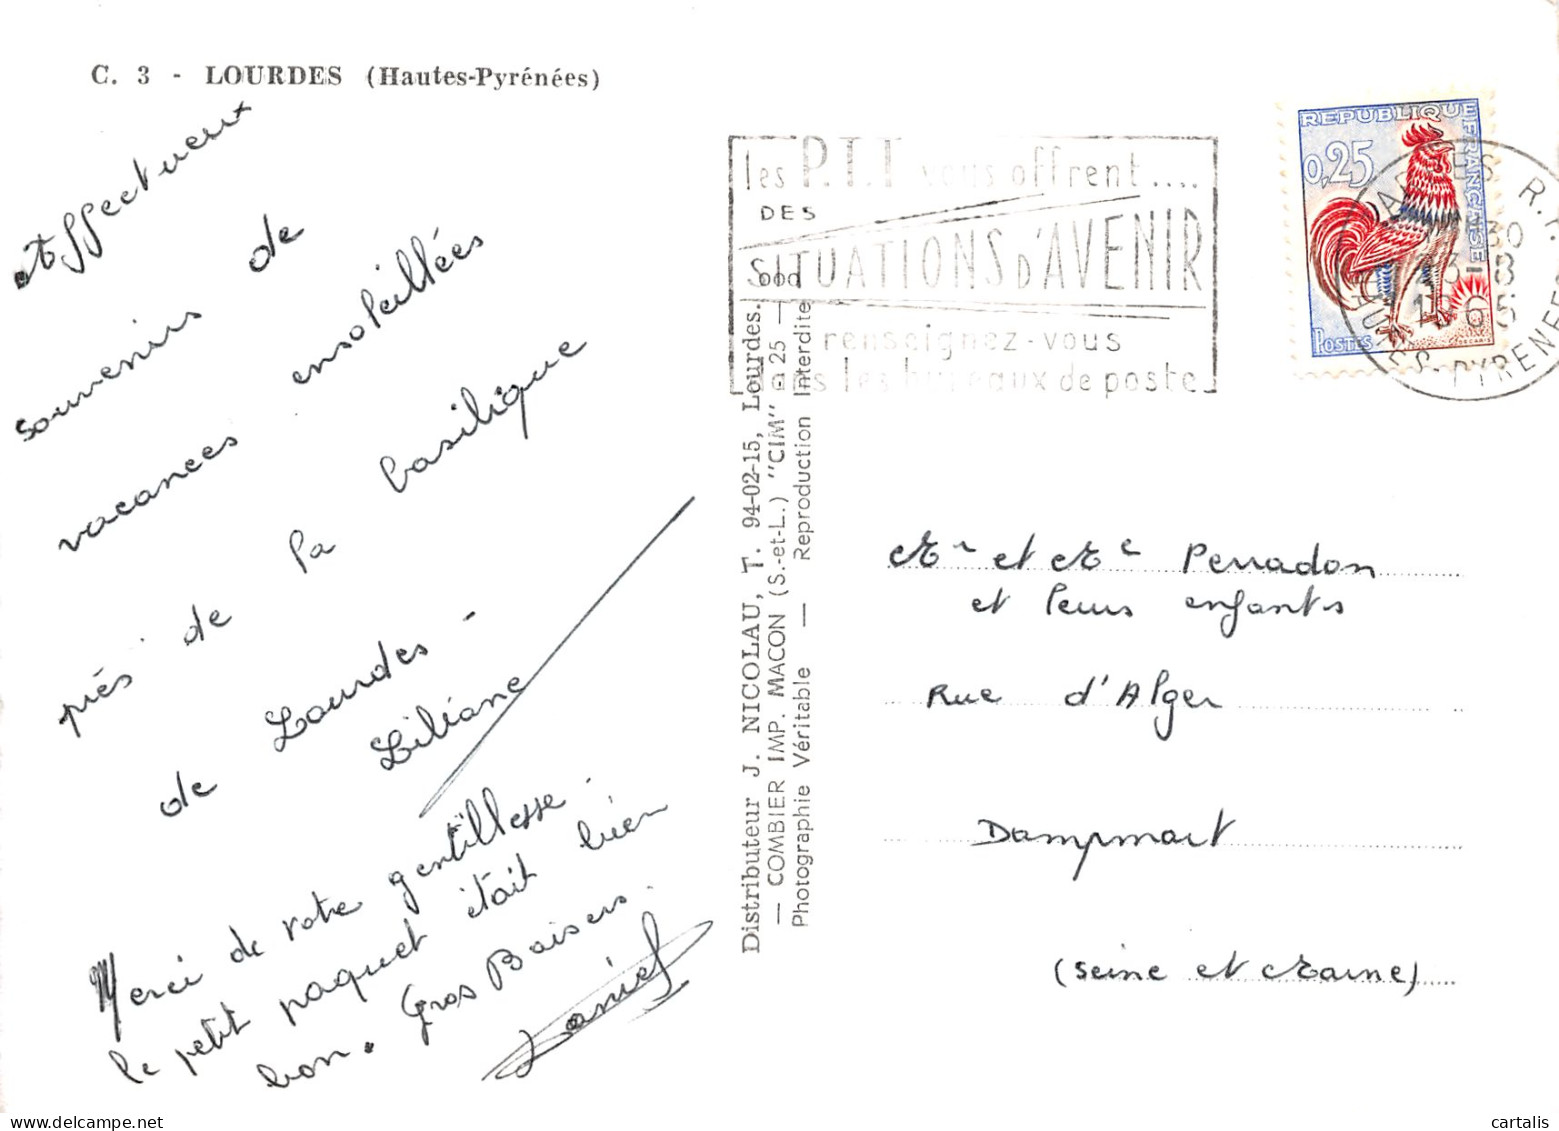 C. 3 - LOURDES (Hautes-Pyrénées)
Affectueux
souvenirs de
vacances ensoleillées
près de la basilique
de Lourdes -
Liliane
Merci de votre gentillesse -
le petit paquet était bien
bon. Gros Baisers.
Daniel
Distributeur J. NICOLAU, T. 94-02-15, Lourdes.
— COMBIER IMP. MACON (S.-et-L.) "CIM" - 25 —
Photographie Véritable — Reproduction Interdite
les P.T.T vous offrent ....
DES
SITUATIONS D'AVENIR
renseignez-vous
dans les bureaux de poste
REPUBLIQUE FRANÇAISE
0,25
POSTES
R.P.
30
-8
1965
HTES-PYRENEES
Mr et Me Perradon
et leurs enfants
Rue d'Alger
Dampmart
(Seine et Marne)
cartalis